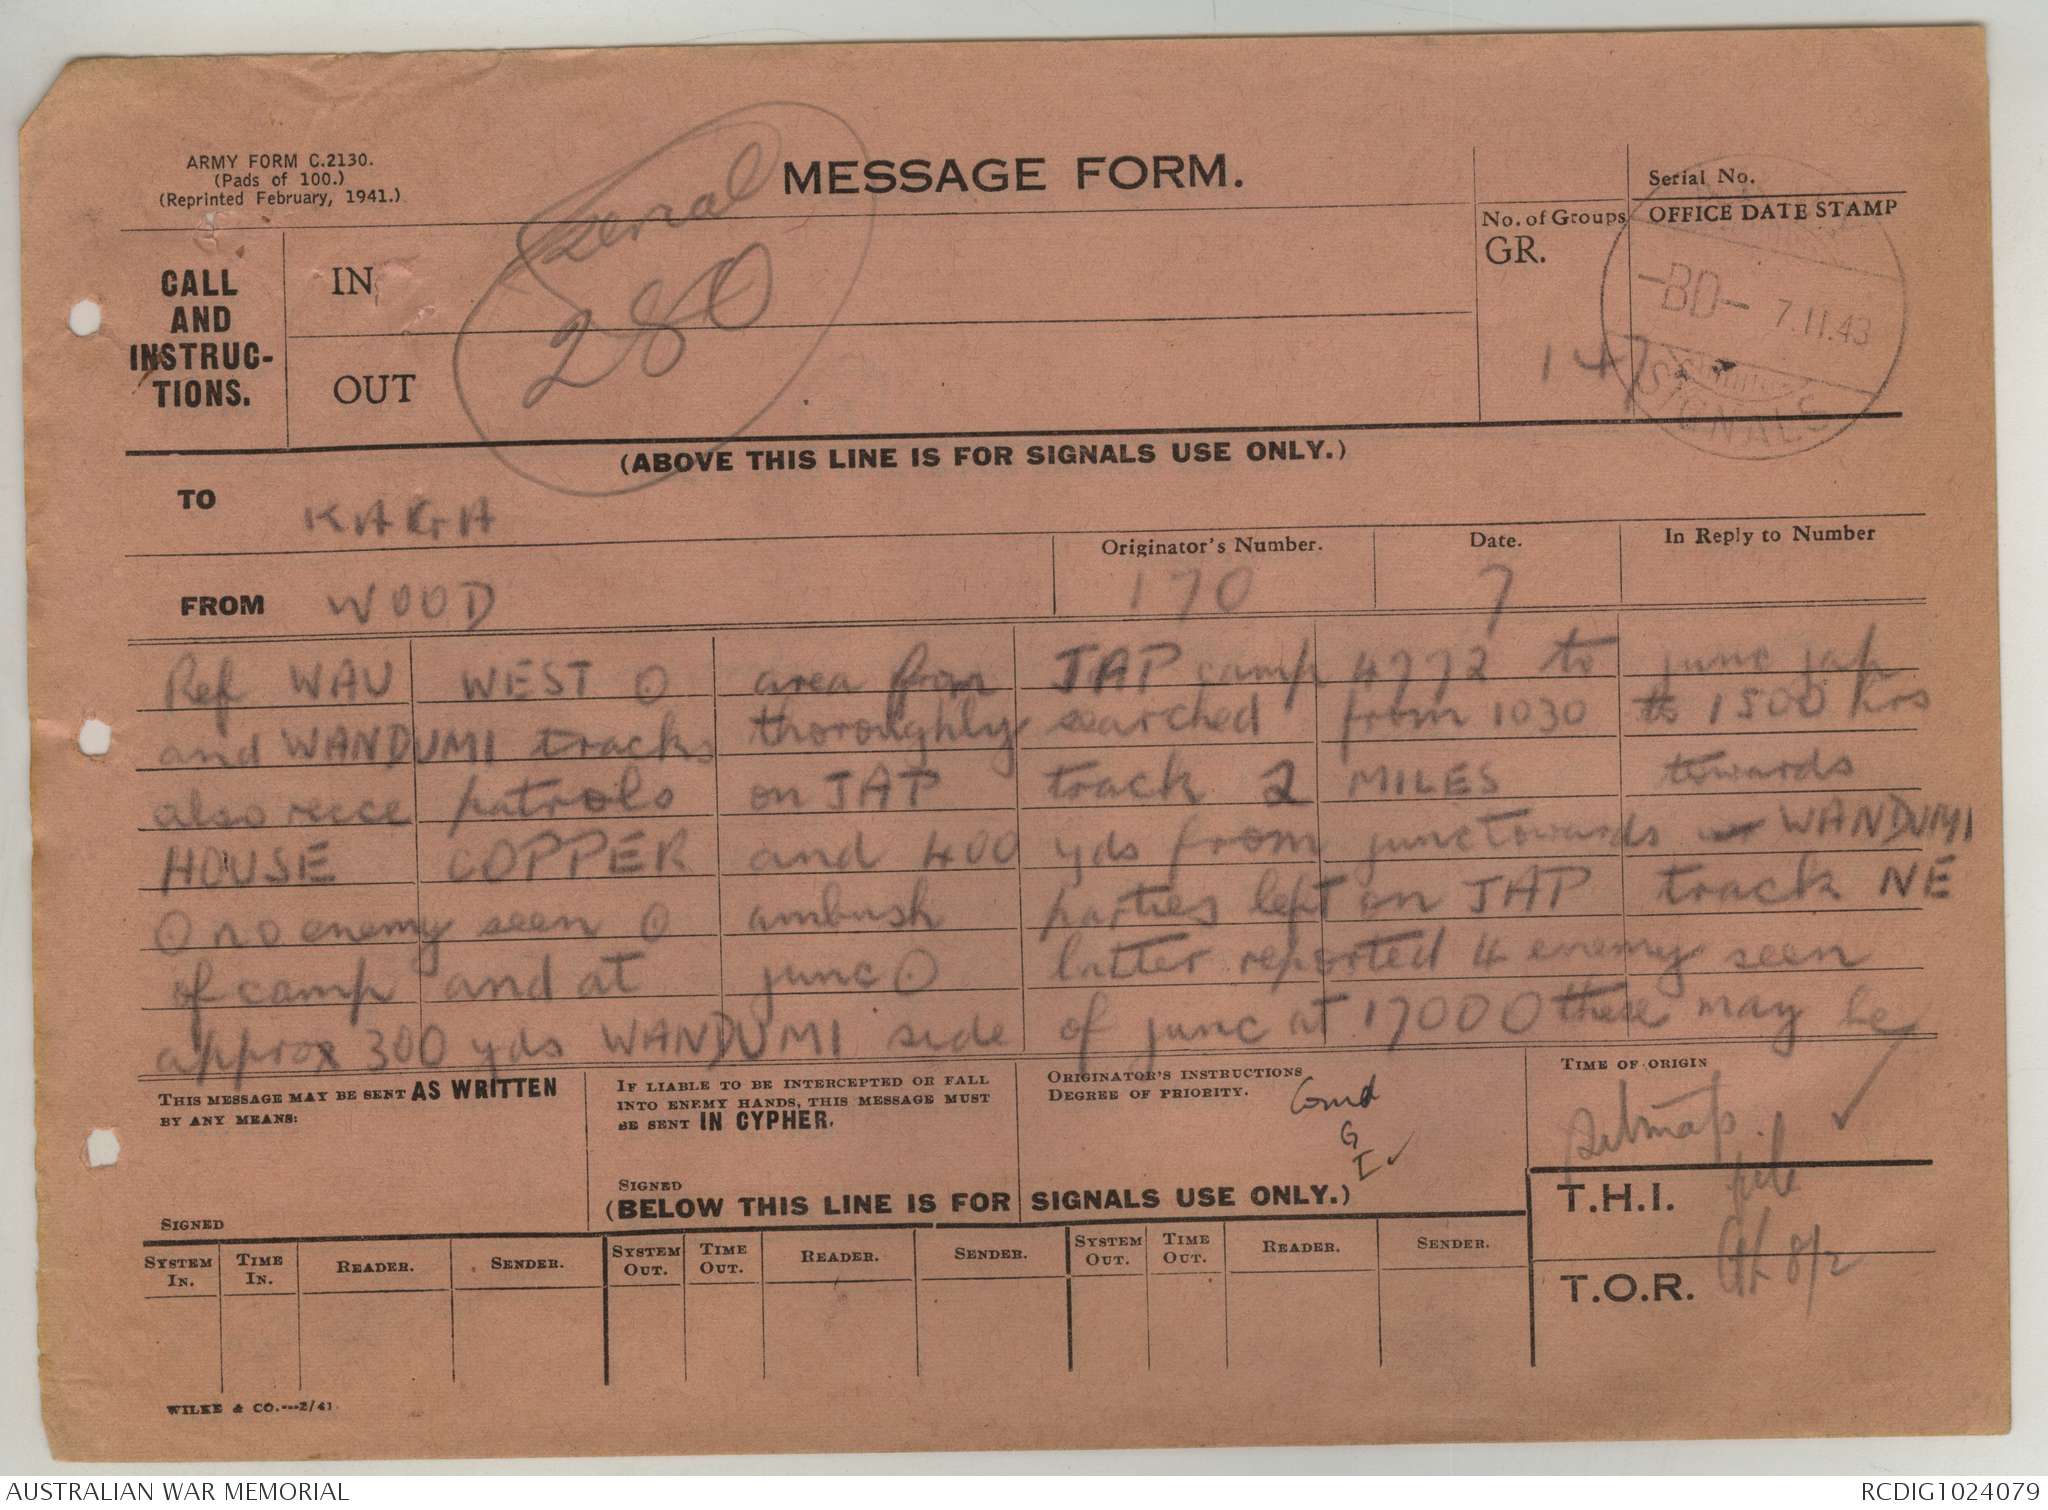 ARMY FORM C.2130.
(Pads of 100.)
(Reprinted February, 1941.)
MESSAGE FORM.
Serial
280
Serial No.
No. of Groups
GR.
147
OFFICE DATE STAMP
-BD- 7.11.43
SIGNALS
CALL
AND
INSTRUC-
TIONS.
IN
OUT
(ABOVE THIS LINE IS FOR SIGNALS USE ONLY.)
TO KAGA
FROM WOOD
Originator's Number.
170
Date.
7
In Reply to Number
Ref WAU WEST O area from JAP camp 4772 to junc jap
and WANDUMI tracks thoroughly searched from 1030 to 1500 hrs
also recce patrols on JAP track 2 MILES towards
HOUSE COPPER and 400 yds from junc towards WANDUMI
O no enemy seen O ambush parties left on JAP track NE
of camp and at junc O latter reported 4 enemy seen
approx 300 yds WANDUMI side of junc at 1700 O there may be
THIS MESSAGE MAY BE SENT AS WRITTEN
BY ANY MEANS:
SIGNED
IF LIABLE TO BE INTERCEPTED OR FALL
INTO ENEMY HANDS, THIS MESSAGE MUST
BE SENT IN CYPHER.
SIGNED
ORIGINATOR'S INSTRUCTIONS
DEGREE OF PRIORITY.
Comd
G
I ✓
TIME OF ORIGIN
T.H.I.
T.O.R.
file
8/2
(BELOW THIS LINE IS FOR SIGNALS USE ONLY.)
SYSTEM IN. TIME IN. READER. SENDER. SYSTEM OUT. TIME OUT. READER. SENDER. SYSTEM OUT. TIME OUT. READER. SENDER.
WILKE & CO.---2/41
AUSTRALIAN WAR MEMORIAL
RCDIG1024079